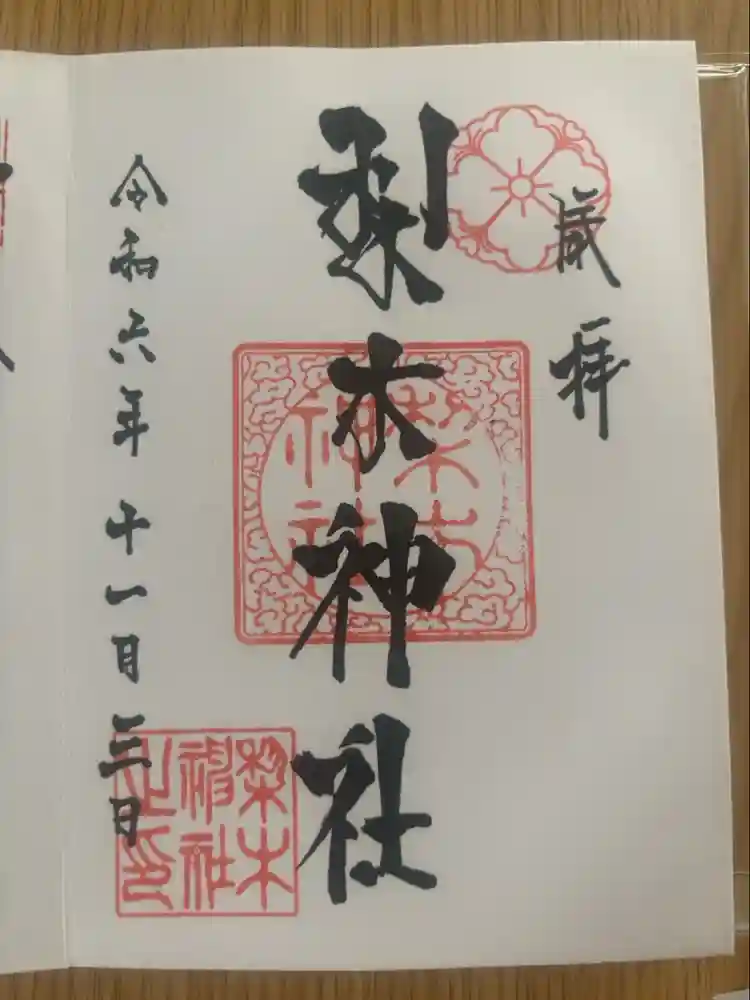 拝
梨木神社
梨木
神社
令和六年十一月三日
梨木
神社
之印